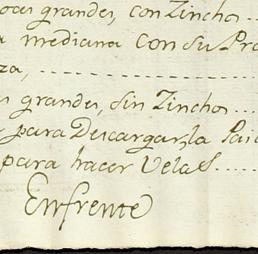 grandes, con Zinchos
mediana Con su
za,
grandes, sin Zinchos
para Descargar, la
para hacer Velas
Enfrente